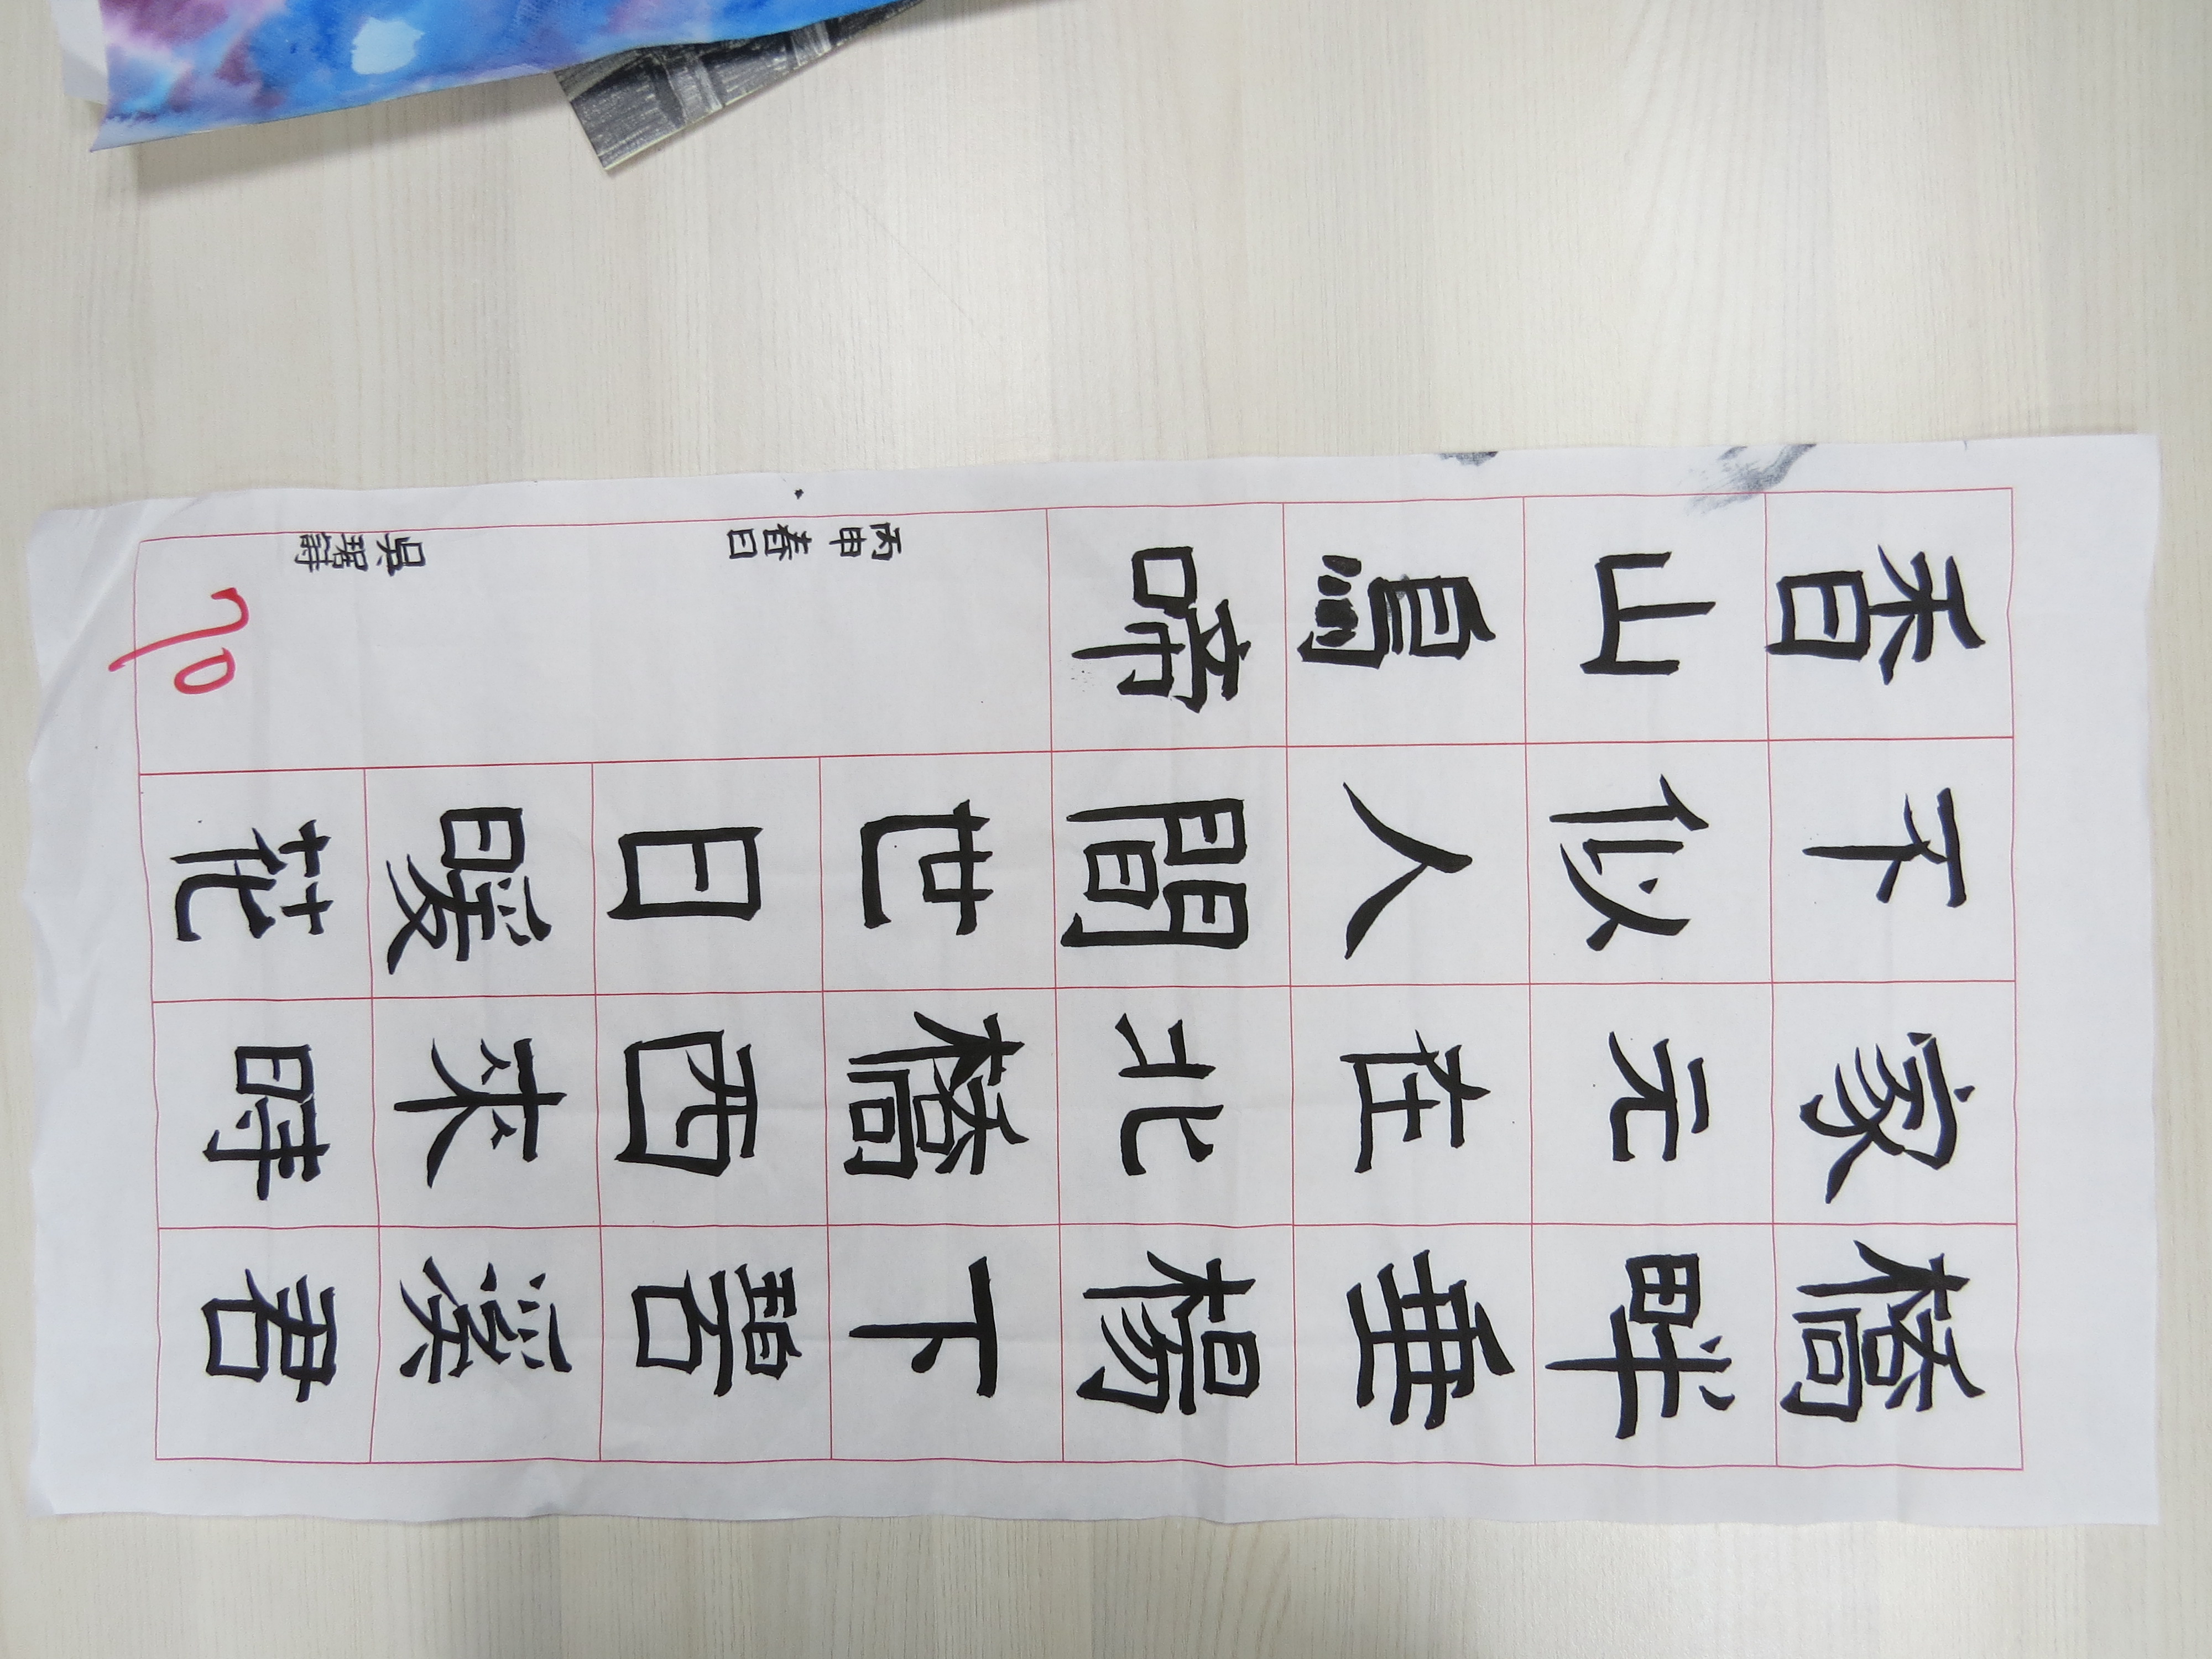 橋畔垂楊下碧溪君
家元在北橋西來時
不似人間世日暖花
香山鳥啼
丙申春日
吳碧詩
90